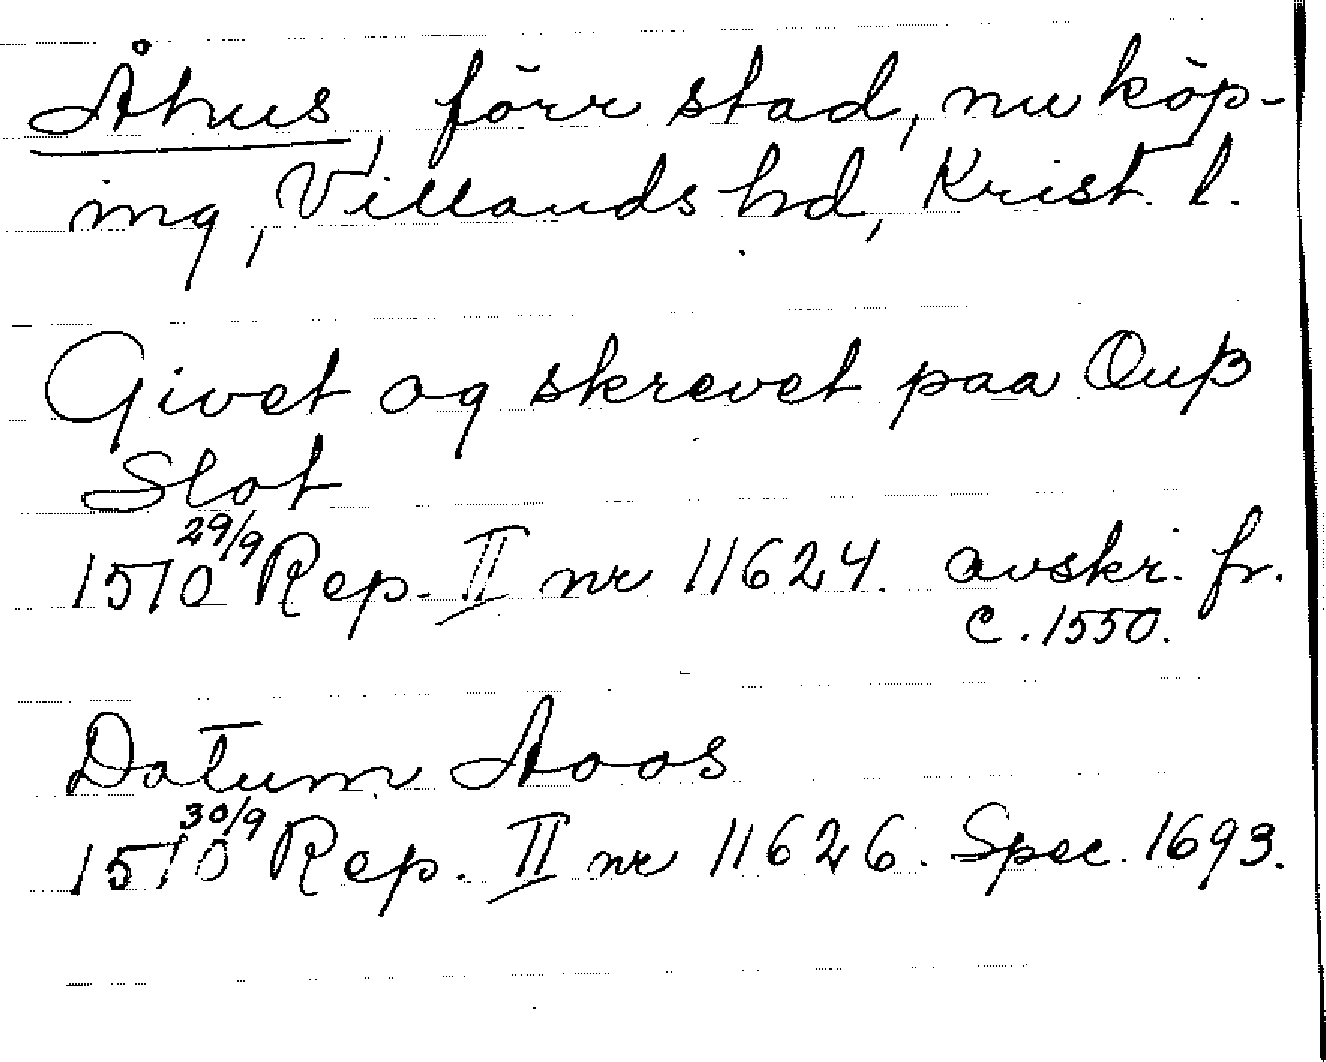 Åhus, förr stad, nu köp-
ing, Villands hd, Krist. l.
Givet og skrevet paa Ouß
Slot
1510 29/9 Rep. II nr 11624. avskr. fr.
c. 1550.
Datum Aoos
1510 30/9 Rep. II nr 11626. Spec. 1693.